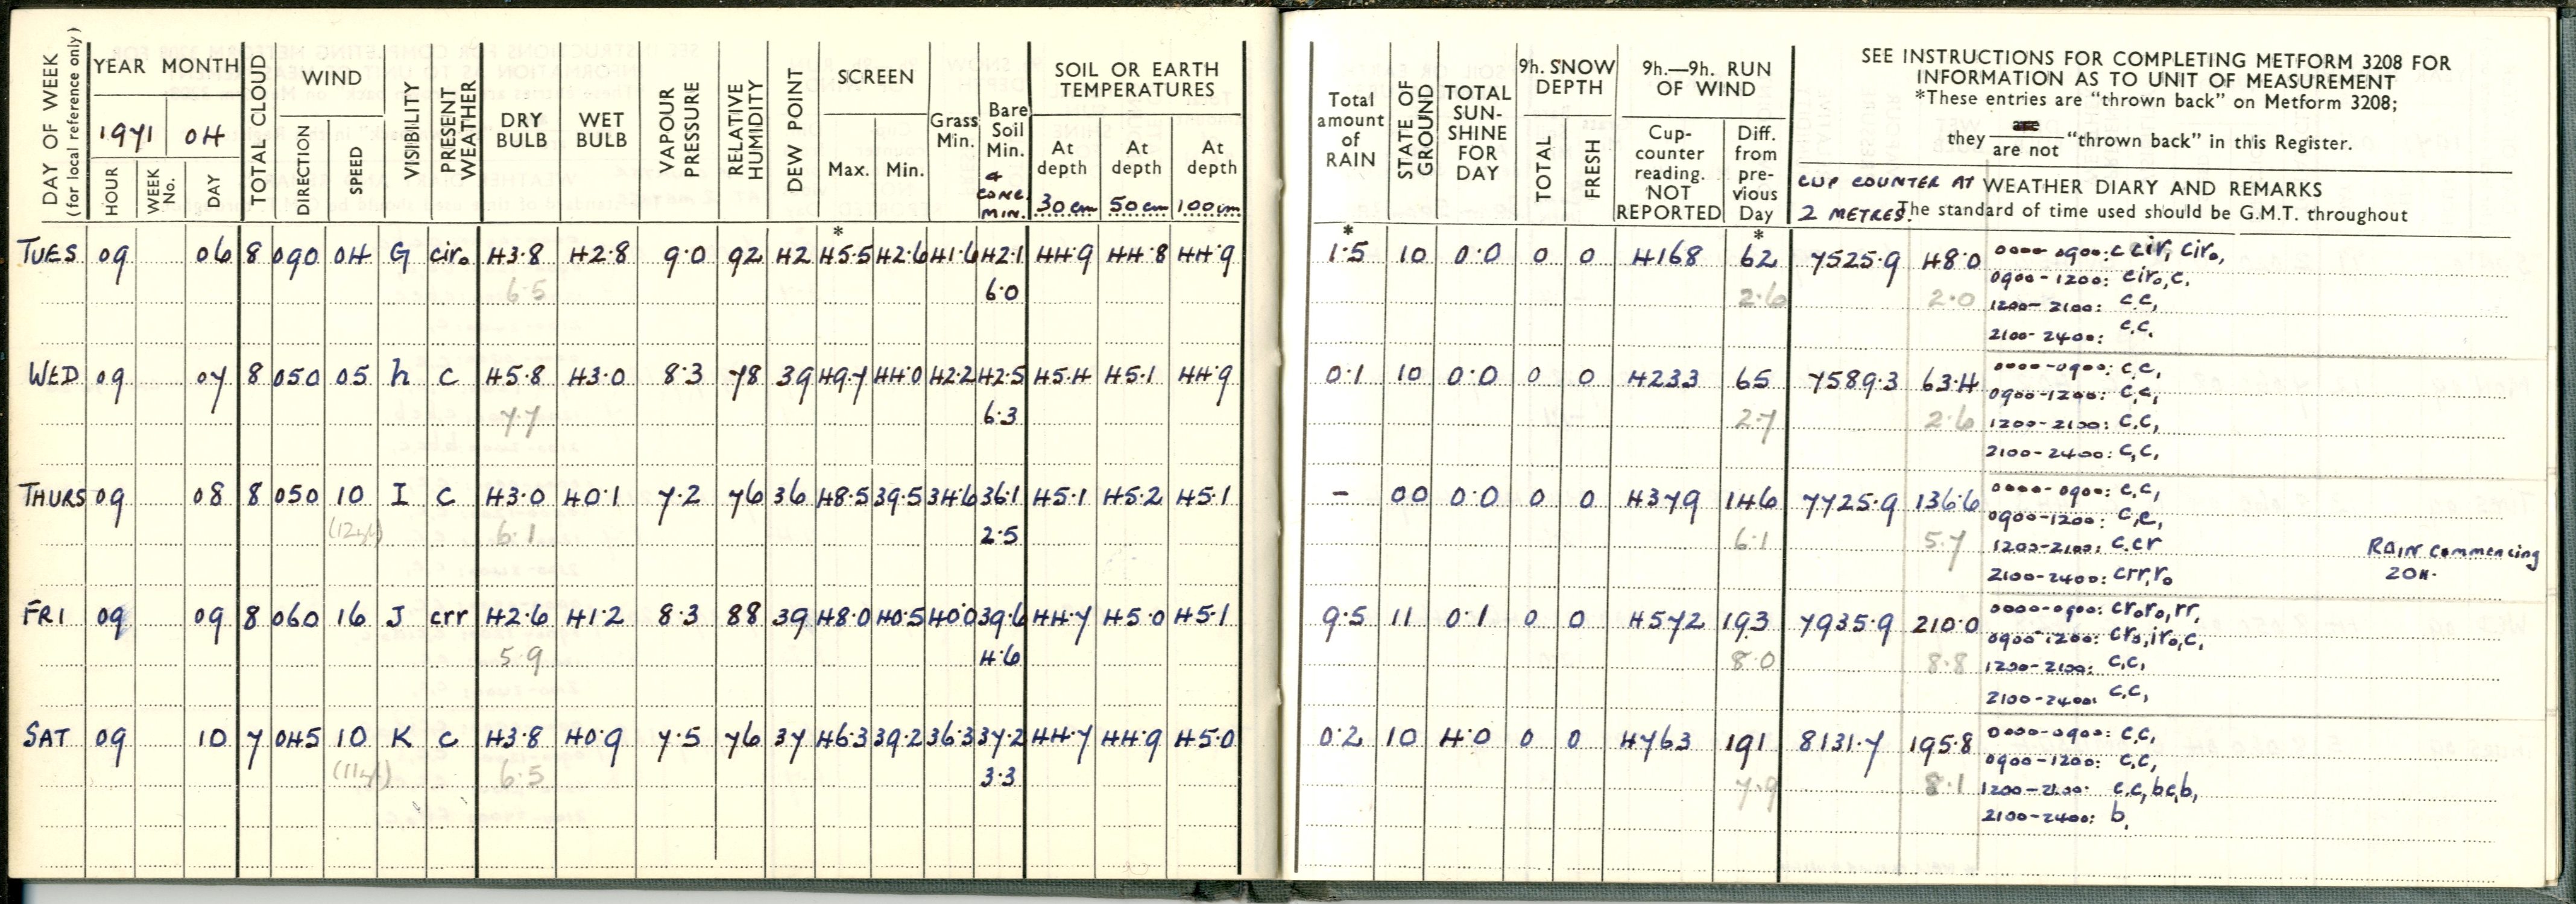 DAY OF WEEK
(for local reference only)
YEAR MONTH
1971 04
HOUR
WEEK No.
DAY
TOTAL CLOUD
WIND
DIRECTION
SPEED
VISIBILITY
PRESENT WEATHER
DRY BULB
WET BULB
VAPOUR PRESSURE
RELATIVE HUMIDITY
DEW POINT
SCREEN
Max. Min.
Grass Min.
Bare Soil Min.
& CONC. MIN.
SOIL OR EARTH TEMPERATURES
At depth At depth At depth
30 cm 50 cm 100 cm
Total amount of RAIN
STATE OF GROUND
TOTAL SUN-SHINE FOR DAY
9h. SNOW DEPTH
TOTAL
FRESH
9h.—9h. RUN OF WIND
Cup-counter reading. NOT REPORTED
Diff. from pre-vious Day
SEE INSTRUCTIONS FOR COMPLETING METFORM 3208 FOR
INFORMATION AS TO UNIT OF MEASUREMENT
*These entries are “thrown back” on Metform 3208;
are
they are not “thrown back” in this Register.
CUP COUNTER AT WEATHER DIARY AND REMARKS
2 METRES. The standard of time used should be G.M.T. throughout
* * *
TUES 09 06 8 090 04 G ciro 43.8 42.8 9.0 92 42 45.5 42.6 41.6 42.1 44.9 44.8 44.9 1.5 10 0.0 0 0 4168 62 7525.9 48.0 0000-0900: c cir, ciro,
6.5 6.0 2.6 2.0 0900-1200: ciro,c,
1200-2100: c,c,
2100-2400: c,c,
WED 09 07 8 050 05 h c 45.8 43.0 8.3 78 39 49.7 44.0 42.2 42.5 45.4 45.1 44.9 0.1 10 0.0 0 0 4233 65 7589.3 63.4 0000-0900: c,c,
7.7 6.3 2.7 2.6 0900-1200: c,c,
1200-2100: c,c,
2100-2400: c,c,
THURS 09 08 8 050 10 I c 43.0 40.1 7.2 76 36 48.5 39.5 34.6 36.1 45.1 45.2 45.1 - 00 0.0 0 0 4379 146 7725.9 136.6 0000-0900: c,c,
(12) 6.1 2.5 6.1 5.7 0900-1200: c,c,
1200-2100: c,cr RAIN commencing
2100-2400: crr,ro 20H.
FRI 09 09 8 060 16 J crr 42.6 41.2 8.3 88 39 48.0 40.5 40.0 39.6 44.7 45.0 45.1 9.5 11 0.1 0 0 4572 193 7935.9 210.0 0000-0900: cr,oro,rr,
5.9 4.6 8.0 8.8 0900-1200: cro,iro,c,
1200-2100: c,c,
2100-2400: c,c,
SAT 09 10 7 045 10 K c 43.8 40.9 7.5 76 37 46.3 39.2 36.3 37.2 44.7 44.9 45.0 0.2 10 4.0 0 0 4763 191 8131.7 195.8 0000-0900: c,c,
(11) 6.5 3.3 7.9 8.1 0900-1200: c,c,
1200-2100: c,c,bc,b,
2100-2400: b,